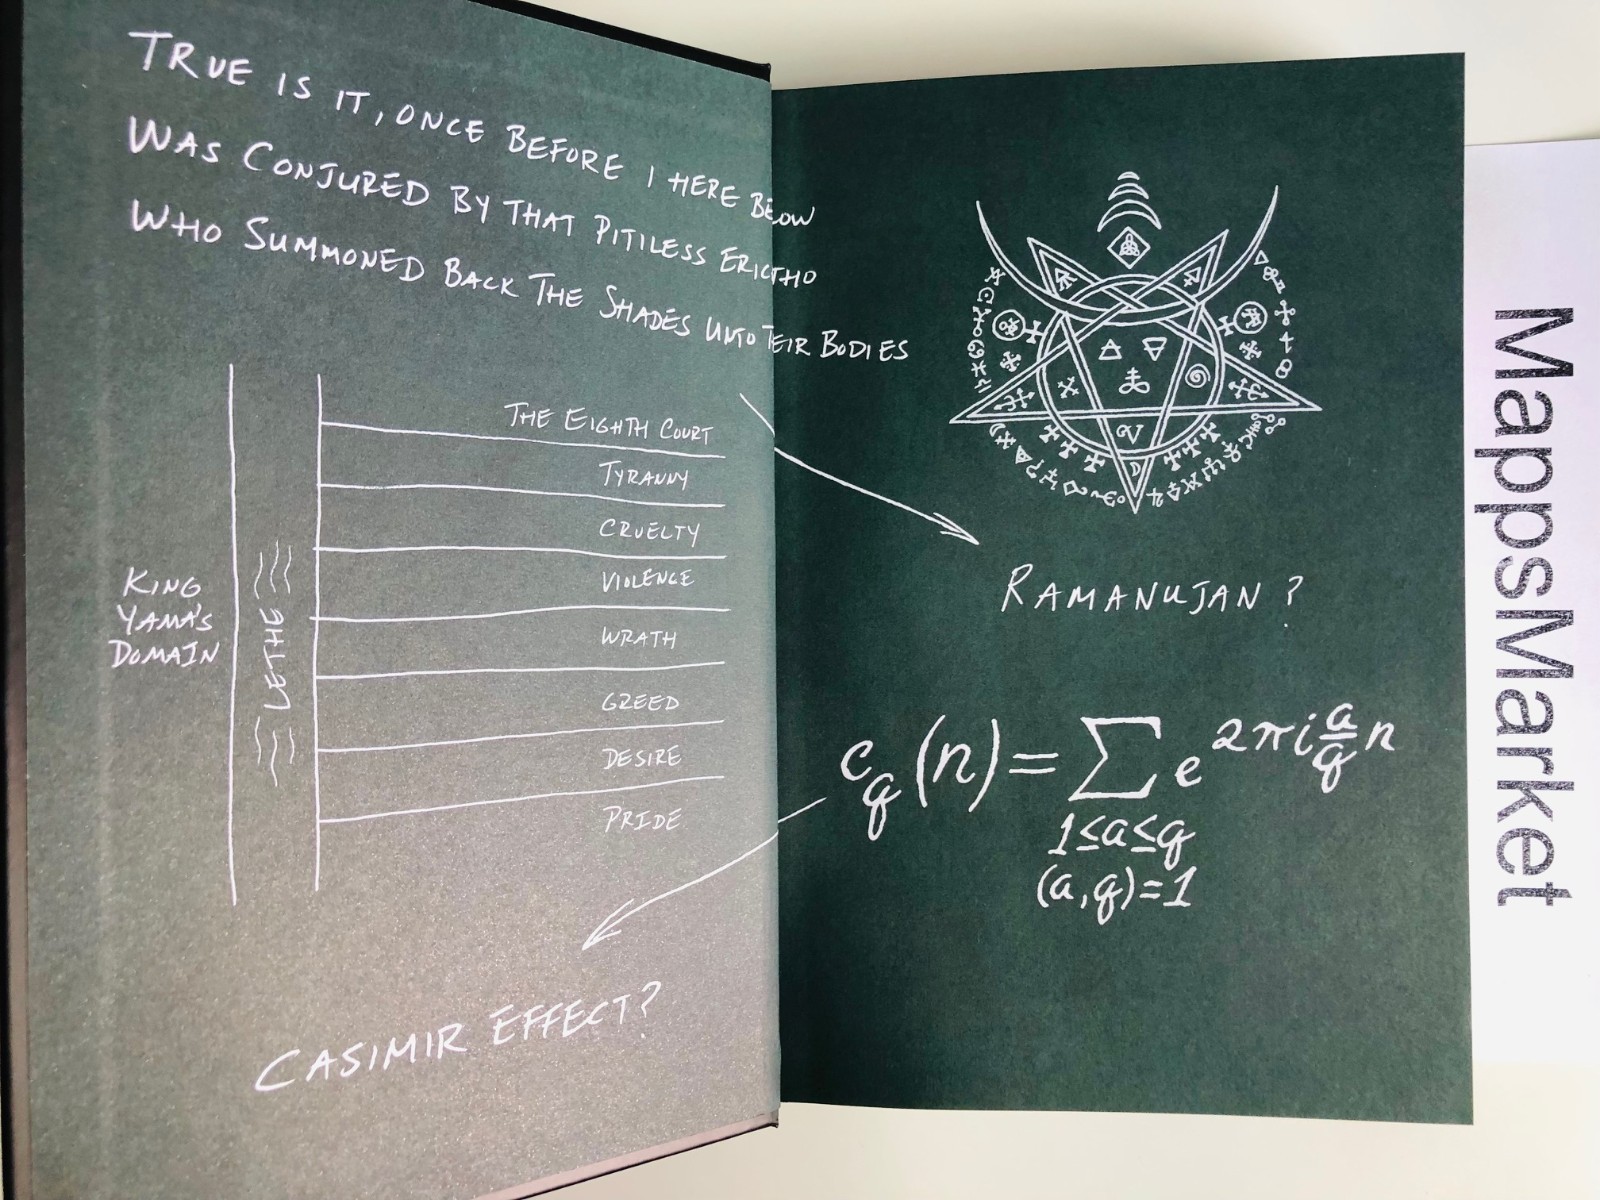 TRUE IS IT, ONCE BEFORE I HERE BELOW
WAS CONJURED BY THAT PITILESS ERICTHO
WHO SUMMONED BACK THE SHADES UNTO TEIR BODIES
THE EIGHTH COURT
TYRANNY
CRUELTY
VIOLENCE
WRATH
GREED
DESIRE
PRIDE
KING
YAMA'S
DOMAIN
LETHE
CASIMIR EFFECT?
RAMANUJAN?
c_q(n)=∑e^{2πi\frac{a}{q}n}
1≤a≤q
(a,q)=1
MappsMarket